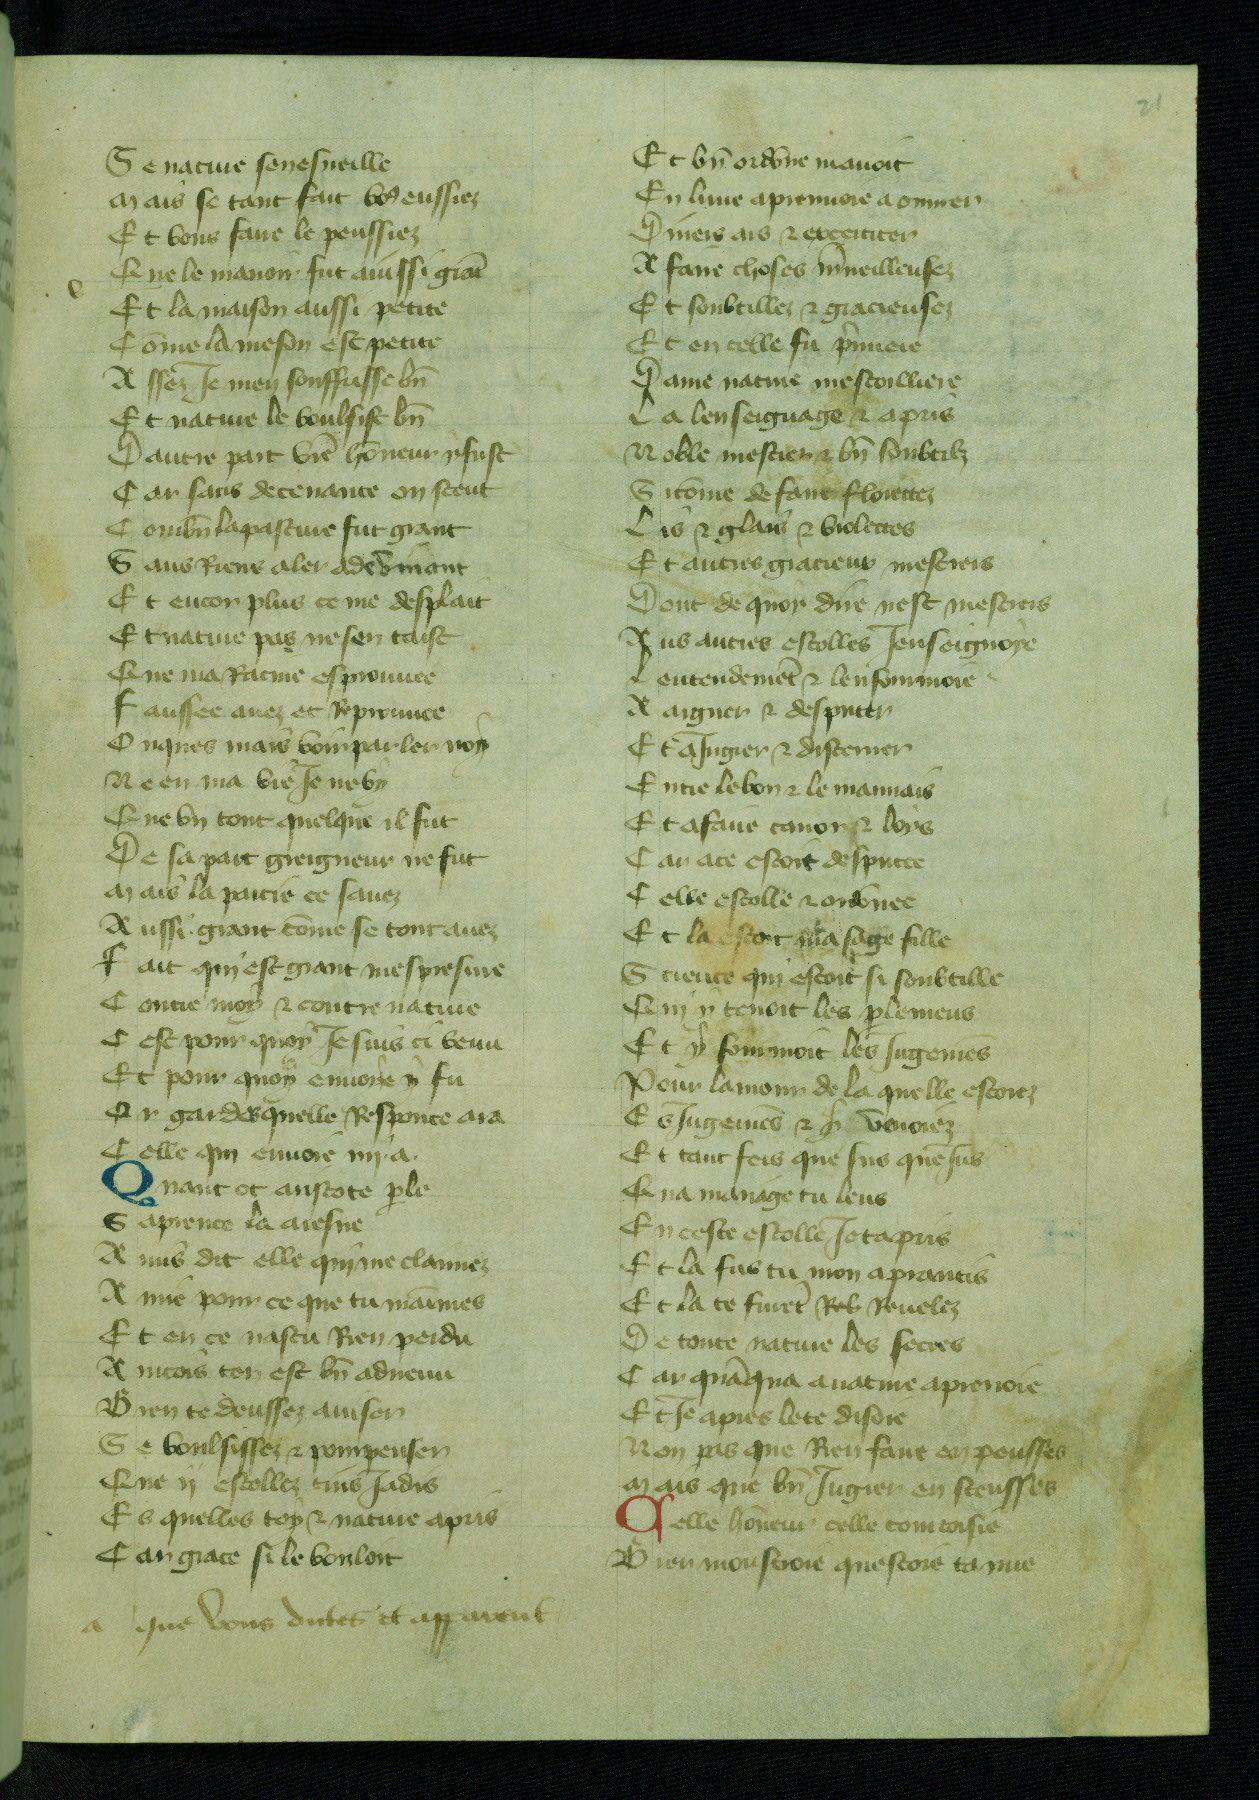 21
Se nature sen esveille
Mais se tant fait vous eussiez
Et vous faire le peussiez
Que le manoir fut aussi grãt
e
Et la maison aussi petite
Cõme la meson est petite
Assez Je men souffrisse bñ
Et nature le voulsist bñ
Dautre part vr̃e hõneur y fust
Car sans decevance on sceut
Combñ la pasture fut grant
Sans Riens aler adevinant
Et encor plus ce me desplait
Et nature pas ne sen taist
Que ma Racine esprouvee
Faussee avez et Reprouvee
Onques mais voir parler noy
Ne en ma vie Je ne vy
Que vn tout quelque il fut
De sa part greigneur ne fut
Mais la partie ce savez
Aussi grant cõme se tout avez
Fait qui est grant mespresure
Contre moy & contre nature
Cest pour quoy Je suis ci venu
Et pour quoy envoye y fu
Or gardes quelle Responce ara
Celle qui envoie my a.
Quant ot aristote ple
Sapience la aresne
Amis dit elle qui me clamez
Amie pour ce que tu maimes
Et en ce nas tu Rien perdu
Aincois ten est bñ advenu
Bien te deusses aviser
Se voulsissez & pourpenser
Que ij escollez tins Jadis
Es quelles toy & nature apris
Car grace si le vouloit
a que vous dictes et apparent
Et bñ ordõne mavoit
En lune aprenvoie a ouvrer
Divers ars & excerciter
A faire choses mveilleusez
Et soubtillez & gracieusez
Et en celle fu pmiere
Dame nature mescoilliere
La lenseignage & apris
Noble mestier & bñ soubtilz
Sicõme de faire florettez
Lis & glais & violettes
Et autres gracieux mestiers
Dont de quoy dire nest mestiers
Aus autres escolles Jenseignoye
Lentendemẽt & lenfourmoie
A arguer & desputer
Et a Jugier & discerner
Entre le bon & le mauvais
Et a faire canons & loys
Car a ce estoit desputee
Celle escolle & ordõnee
Et la estoit ma sage fille
Science qui estoit si soubtille
Qui y tenoit les plemens
Et y fourmoit les Jugemẽs
Pour lamour de la quelle estoiez
Es Jugemẽs & y venoiez
Et tant feis que sus que Jus
Qua mariage tu leus
En ceste escolle Je tapris
Et la fus tu mon aprantis
Et la te furẽt Revelez
De toute nature les secres
Car quãqua a nature aprenoie
Et Je apres le te disoie
Non pas que Rien faire en peusses
Mais que bñ Jugier en sceusses
Celle hõneur celle courtoisie
Bien monstroie questoie ta mie